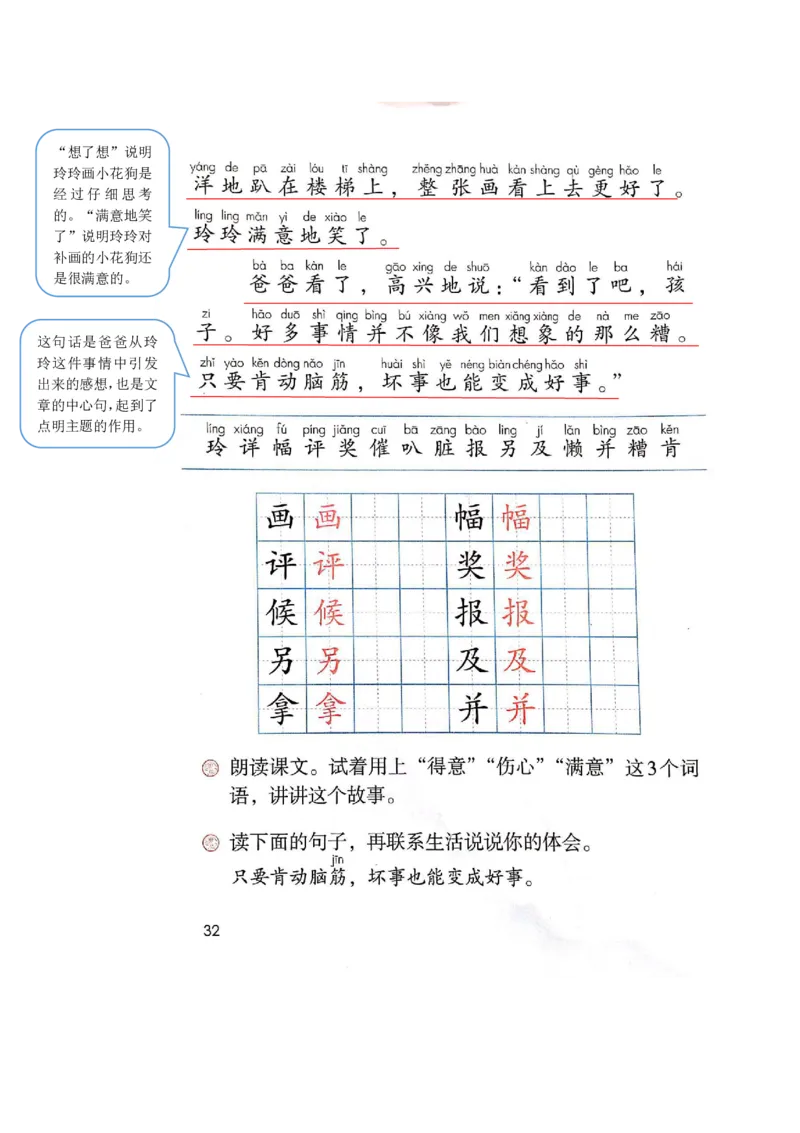 “想了想”说明
玲玲画小花狗是
经过仔细思考
的。“满意地笑
了”说明玲玲对
补画的小花狗还
是很满意的。
yáng de pā zài lóu tī shàng zhěng zhāng huà kàn shàng qù gèng hǎo le
洋地趴在楼梯上，整张画看上去更好了。
líng ling mǎn yì de xiào le
玲玲满意地笑了。
bà ba kàn le gāo xìng de shuō kàn dào le ba hái
爸爸看了，高兴地说：“看到了吧，孩
zi hǎo duō shì qing bìng bú xiàng wǒ men xiǎng xiàng de nà me zāo
子。好多事情并不像我们想象的那么糟。
这句话是爸爸从玲
玲这件事情中引发
出来的感想，也是文
章的中心句，起到了
点明主题的作用。
zhǐ yào kěn dòng nǎo jīn huài shì yě néng biàn chéng hǎo shì
只要肯动脑筋，坏事也能变成好事。”
líng xiáng fú píng jiǎng cuī bā zāng bào lìng jí lǎn bìng zāo kěn
玲详幅评奖催叭脏报另及懒并糟肯
画画 幅幅
评评 奖奖
候候 报报
另另 及及
拿拿 并并
朗读课文。试着用上“得意”“伤心”“满意”这3个词
语，讲讲这个故事。
读下面的句子，再联系生活说说你的体会。
jīn
只要肯动脑筋，坏事也能变成好事。
32